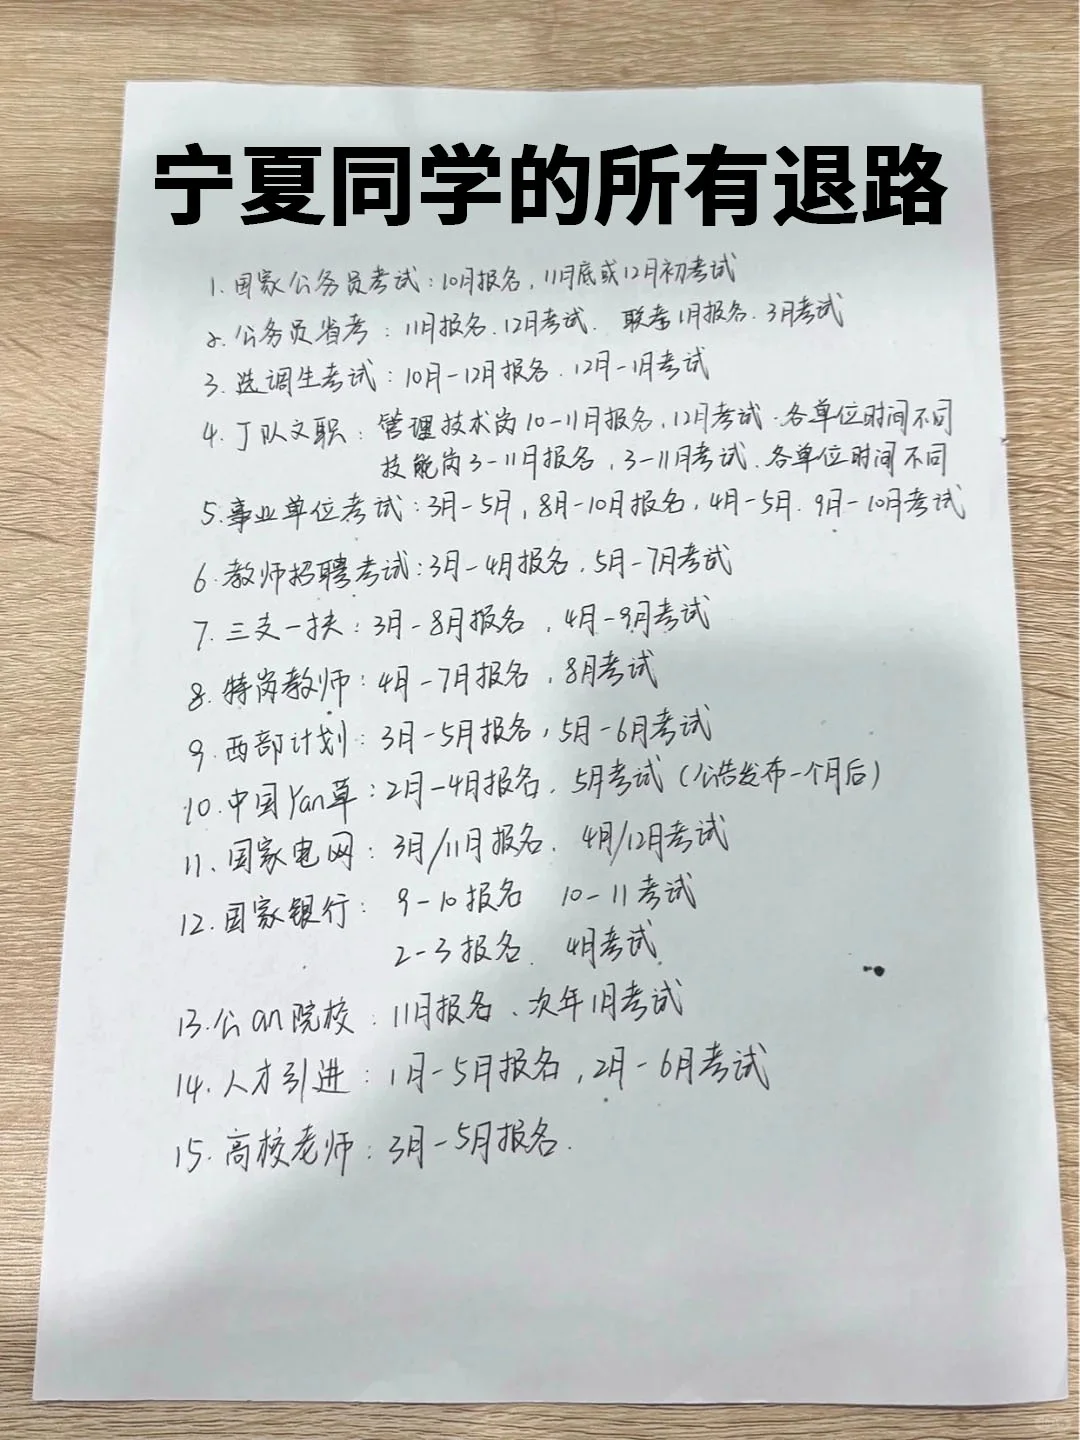 宁夏同学的所有退路
1.国家公务员考试：10月报名，11月底或12月初考试
2.公务员省考：11月报名.12月考试. 联考1月报名.3月考试
3.选调生考试：10月-12月报名.12月-1月考试
4.丁队文职：管理技术岗10-11月报名，12月考试.各单位时间不同
技能岗3-11月报名，3-11月考试.各单位时间不同
5.事业单位考试：3月-5月，8月-10月报名，4月-5月.9月-10月考试
6.教师招聘考试：3月-4月报名，5月-7月考试
7.三支一扶：3月-8月报名，4月-9月考试
8.特岗教师：4月-7月报名，8月考试
9.西部计划：3月-5月报名，5月-6月考试
10.中国Yan草：2月-4月报名，5月考试（公告发布一个月后）
11.国家电网：3月/11月报名. 4月/12月考试
12.国家银行：9-10报名 10-11考试
2-3报名. 4月考试.
13.公an院校：11月报名、次年1月考试
14.人才引进：1月-5月报名，2月-6月考试
15.高校老师：3月-5月报名.